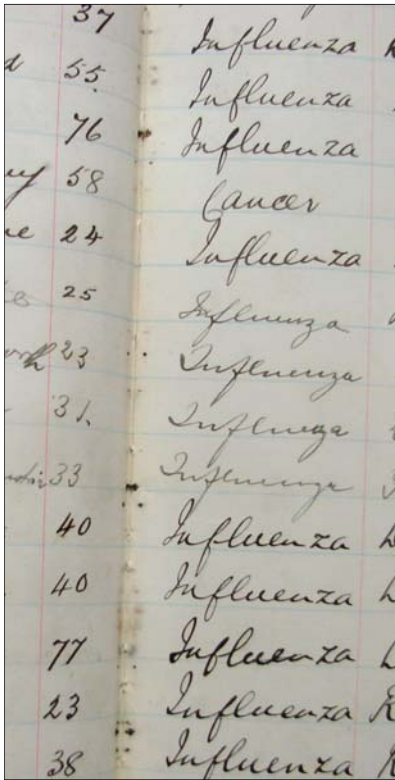 37 Influenza
55. Influenza
76 Influenza
58 Cancer
24 Influenza
25 Influenza
23 Influenza
31. Influenza
33 Influenza
40 Influenza
40 Influenza
77 Influenza
23 Influenza
38 Influenza